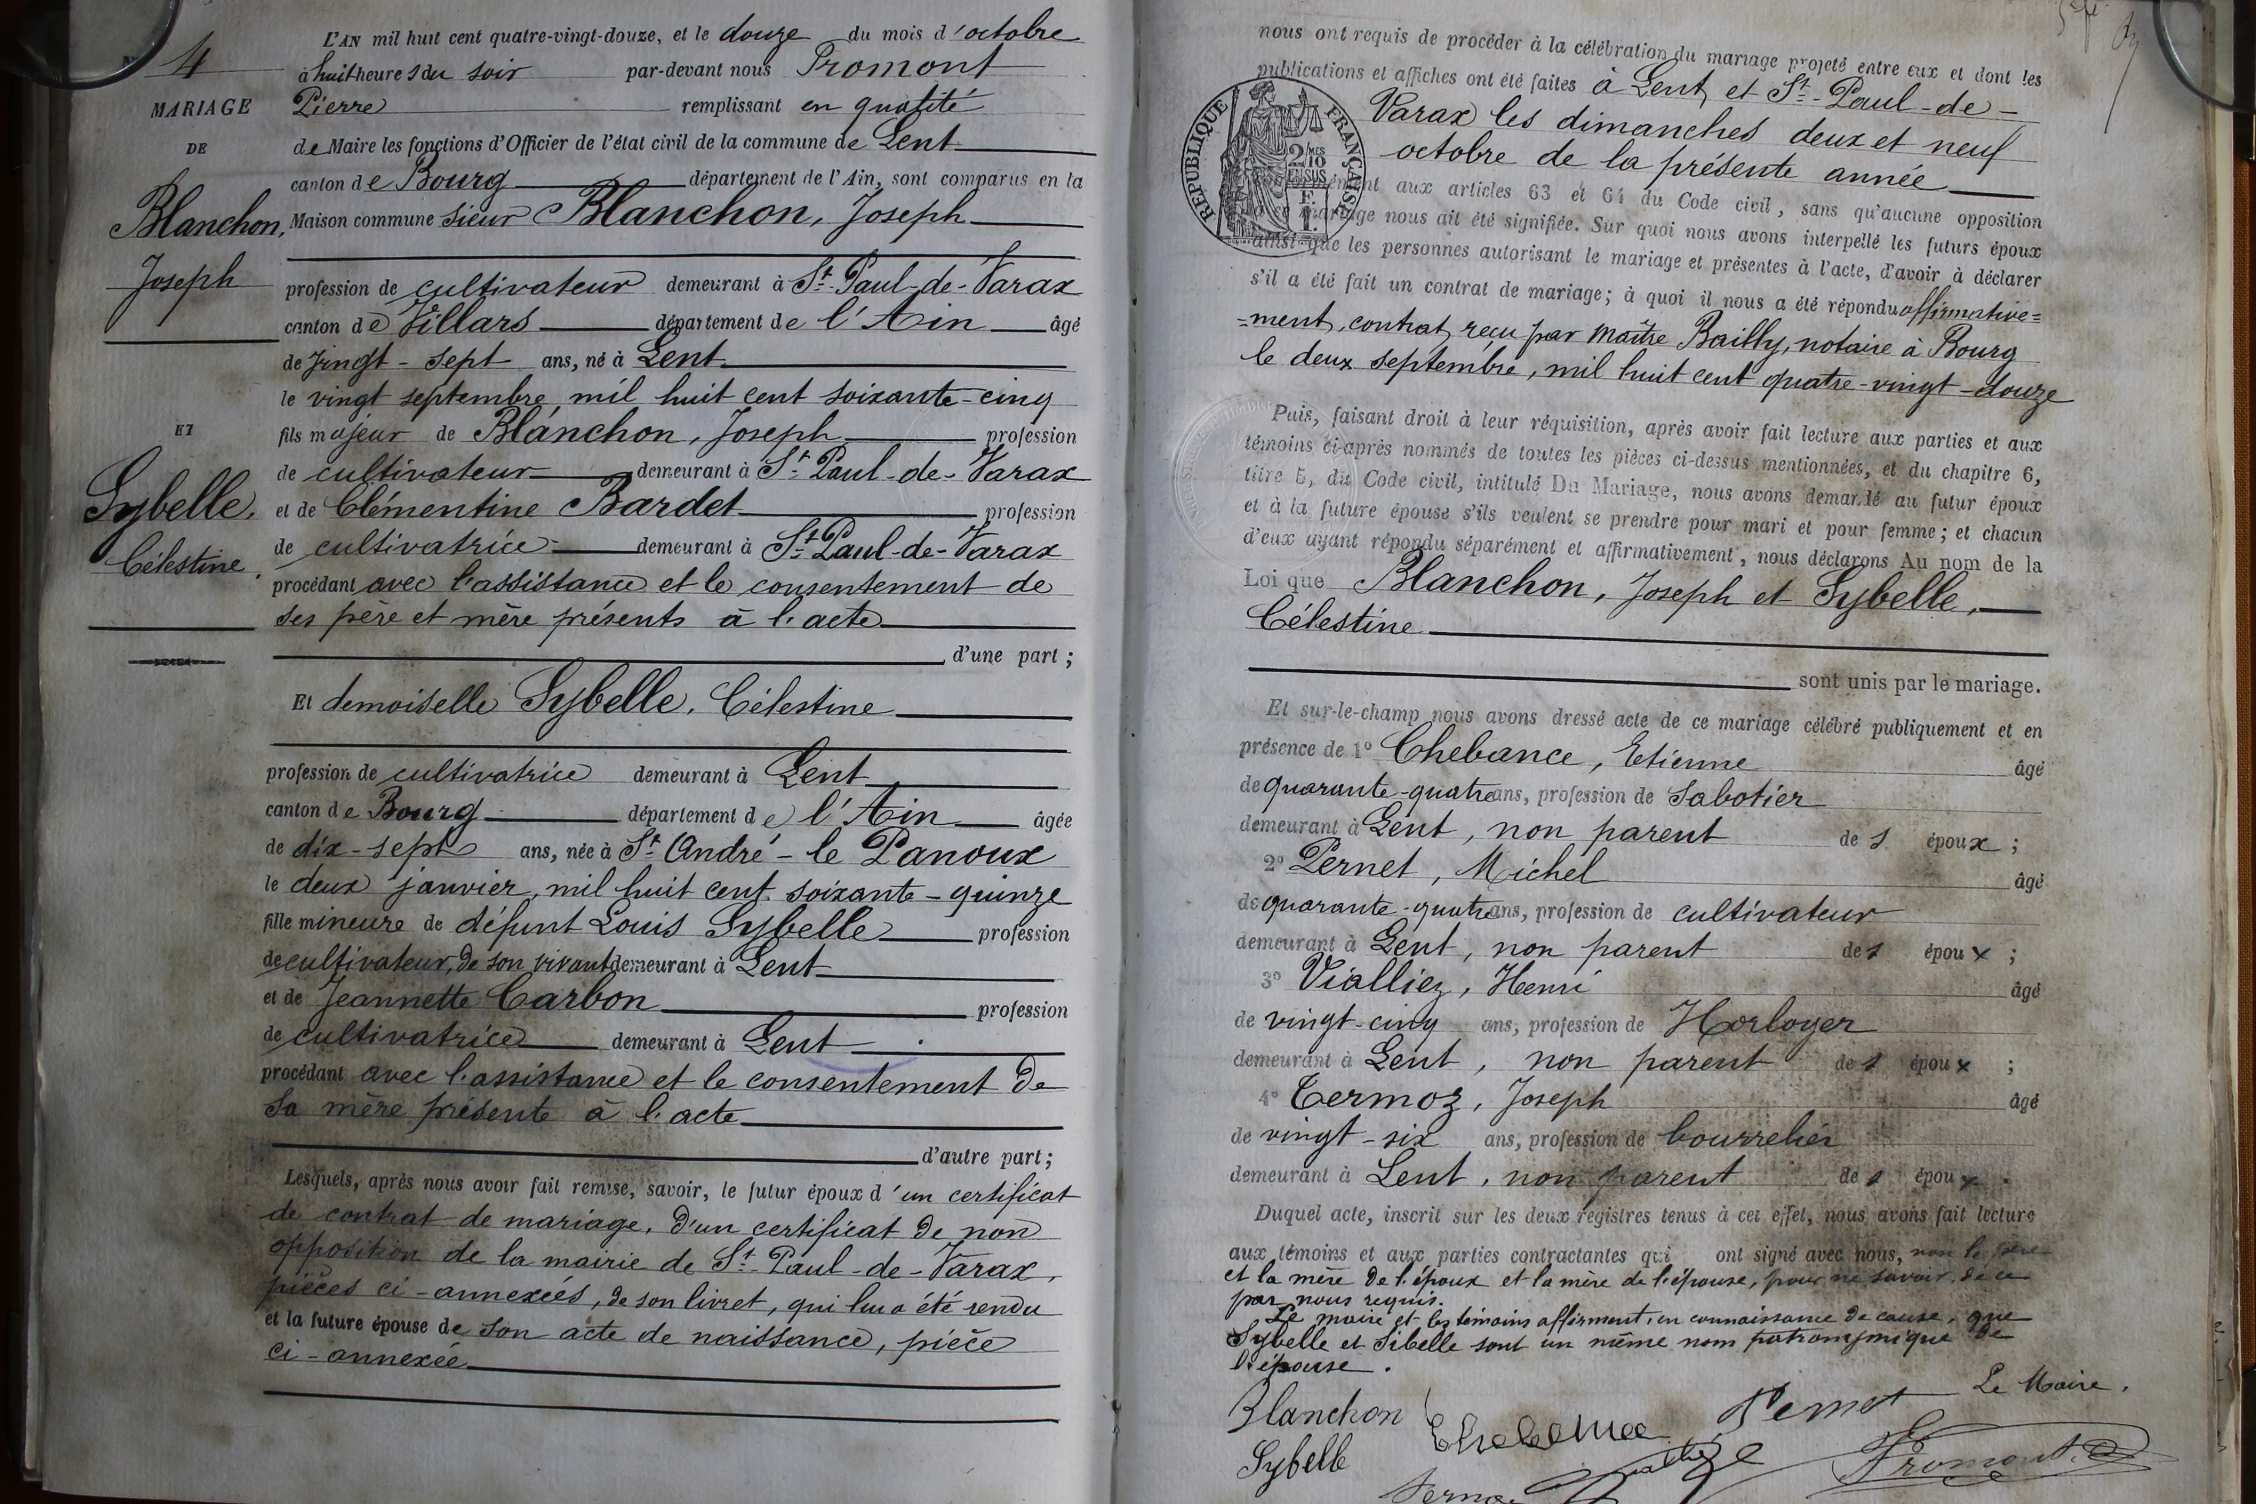 4
MARIAGE
DE
Blanchon,
Joseph
ET
Sybelle,
Célestine.
L'AN mil huit cent quatre-vingt-douze, et le douze du mois d'octobre
à huit heures du soir par-devant nous Promont
Pierre remplissant en qualité
de Maire les fonctions d'Officier de l'état civil de la commune de Lent
canton de Bourg département de l'Ain, sont comparus en la
Maison commune sieur Blanchon, Joseph
profession de cultivateur demeurant à St-Paul-de-Varax
canton de Villars département de l'Ain âgé
de vingt-sept ans, né à Lent
le vingt septembre, mil huit cent soixante-cinq
fils majeur de Blanchon, Joseph profession
de cultivateur demeurant à St-Paul-de-Varax
et de Clémentine Bardet profession
de cultivatrice demeurant à St-Paul-de-Varax
procédant avec l'assistance et le consentement de
ses père et mère présents à l'acte
d'une part;
Et demoiselle Sybelle, Célestine
profession de cultivatrice demeurant à Lent
canton de Bourg département de l'Ain âgée
de dix-sept ans, née à St André-le Panoux
le deux janvier, mil huit cent soixante-quinze
fille mineure de défunt Louis Sybelle profession
de cultivateur, de son vivant demeurant à Lent
et de Jeannette Carbon profession
de cultivatrice demeurant à Lent
procédant avec l'assistance et le consentement de
sa mère présente à l'acte
d'autre part;
Lesquels, après nous avoir fait remise, savoir, le futur époux d'un certificat
de contrat de mariage, d'un certificat de non
opposition de la mairie de St-Paul-de-Varax,
pièces ci-annexées, de son livret, qui lui a été rendu
et la future épouse de son acte de naissance, pièce
ci-annexée
nous ont requis de procéder à la célébration du mariage projeté entre eux et dont les
publications et affiches ont été faites à Lent et St-Paul-de-
Varax les dimanches deux et neuf
octobre de la présente année
aux articles 63 et 64 du Code civil, sans qu'aucune opposition
mariage nous ait été signifiée. Sur quoi nous avons interpellé les futurs époux
ainsi que les personnes autorisant le mariage et présentes à l'acte, d'avoir à déclarer
s'il a été fait un contrat de mariage; à quoi il nous a été répondu affirmative=
=ment, contrat reçu par Maître Bailly, notaire à Bourg
le deux septembre, mil huit cent quatre-vingt-douze
RÉPUBLIQUE FRANÇAISE
2/10 EN SUS
Puis, faisant droit à leur réquisition, après avoir fait lecture aux parties et aux
témoins ci-après nommés de toutes les pièces ci-dessus mentionnées, et du chapitre 6,
titre 5, du Code civil, intitulé Du Mariage, nous avons demandé au futur époux
et à la future épouse s'ils veulent se prendre pour mari et pour femme; et chacun
d'eux ayant répondu séparément et affirmativement, nous déclarons Au nom de la
Loi que Blanchon, Joseph et Sybelle,
Célestine
sont unis par le mariage.
Et sur-le-champ nous avons dressé acte de ce mariage célébré publiquement et en
présence de 1° Chebance, Etienne âgé
de quarante-quatre ans, profession de Sabotier
demeurant à Lent, non parent des époux;
2° Pernet, Michel âgé
de quarante-quatre ans, profession de cultivateur
demeurant à Lent, non parent des époux;
3° Vialliez, Henri âgé
de vingt-cinq ans, profession de Horloger
demeurant à Lent, non parent des époux;
4° Termoz, Joseph âgé
de vingt-six ans, profession de bourrelier
demeurant à Lent, non parent des époux.
Duquel acte, inscrit sur les deux registres tenus à cet effet, nous avons fait lecture
aux témoins et aux parties contractantes qui ont signé avec nous, non le père
et la mère de l'époux et la mère de l'épouse, pour ne savoir, de ce
par nous requis.
Le maire et les témoins affirment, en connaissance de cause, que
Sybelle et Sibelle sont un même nom patronymique de
l'épouse.
Le Maire,
Blanchon
Pernet
Sybelle